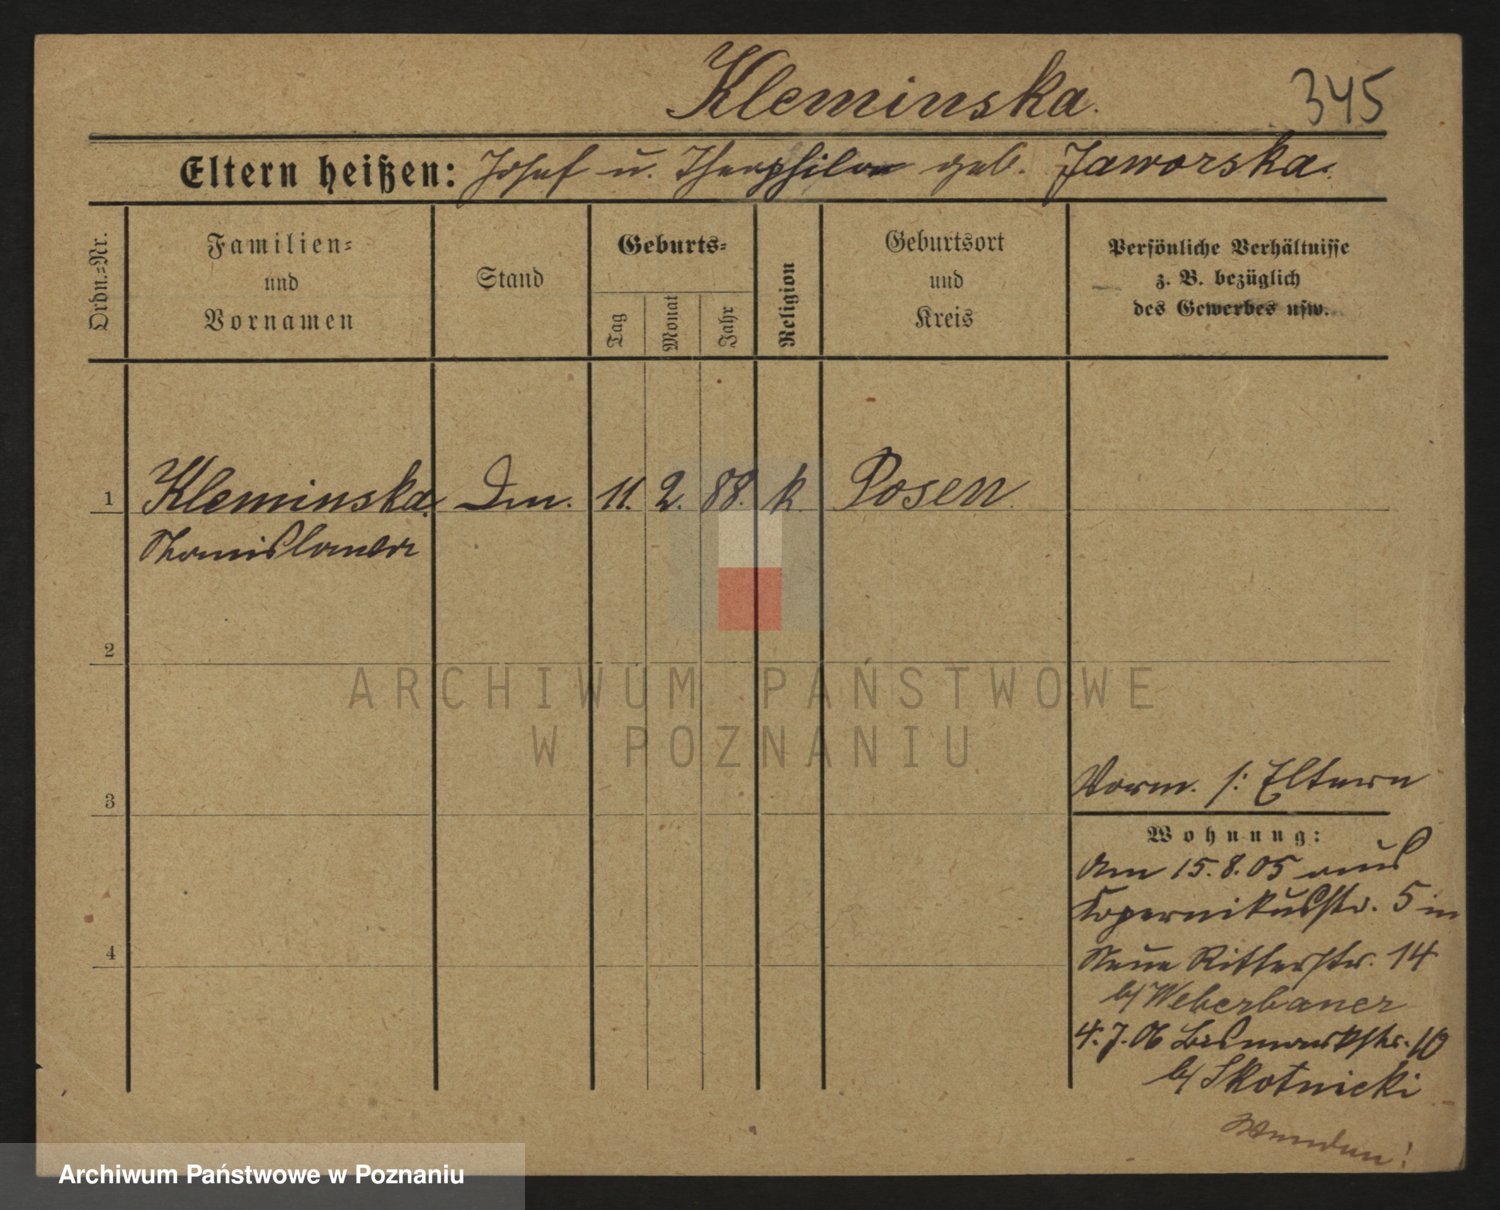 Kleminska. 345
Eltern heißen: Josef u. Theophila geb. Jaworska.
Ordn.=Nr.
Familien=
und
Vornamen
Stand
Geburts=
Tag
Monat
Jahr
Religion
Geburtsort
und
Kreis
Persönliche Verhältnisse
z. B. bezüglich
des Gewerbes usw.
1 Kleminska Dm. 11. 2. 88. k. Posen
Stanislawa
2
3
4
ARCHIWUM PAŃSTWOWE
W POZNANIU
Vorm. s: Eltern
Wohnung:
Am 15.8.05 aus
Kopernikusstr. 5 in
Neue Ritterstr. 14
b/ Weberbauer
4.7.06 Bismarckstr. 10
b/ Skotnicki
Wenden!
Archiwum Państwowe w Poznaniu